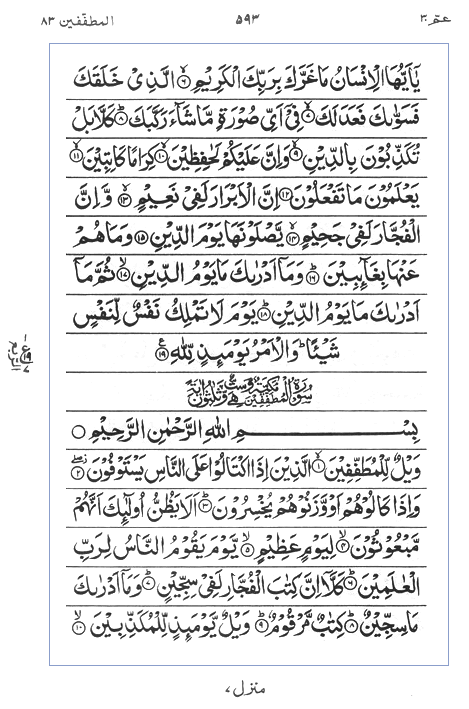 عمّ ٣٠ ٥٩٣ المطفّفين ٨٣
يٰۤاَيُّهَا الْاِنْسَانُ مَا غَرَّكَ بِرَبِّكَ الْكَرِيْمِ ۙ﴿۶﴾ الَّذِىْ خَلَقَكَ
فَسَوّٰىكَ فَعَدَلَكَ ۙ﴿۷﴾ فِىْۤ اَىِّ صُوْرَةٍ مَّا شَآءَ رَكَّبَكَ ؕ﴿۸﴾ كَلَّا بَلْ
تُكَذِّبُوْنَ بِالدِّيْنِ ۙ﴿۹﴾ وَاِنَّ عَلَيْكُمْ لَحٰفِظِيْنَ ۙ﴿۱۰﴾ كِرَامًا كَاتِبِيْنَ ۙ﴿۱۱﴾
يَعْلَمُوْنَ مَا تَفْعَلُوْنَ ﴿۱۲﴾ اِنَّ الْاَبْرَارَ لَفِىْ نَعِيْمٍ ۚ﴿۱۳﴾ وَّاِنَّ
الْفُجَّارَ لَفِىْ جَحِيْمٍ ۚۖ﴿۱۴﴾ يَّصْلَوْنَهَا يَوْمَ الدِّيْنِ ﴿۱۵﴾ وَمَا هُمْ
عَنْهَا بِغَآئِبِيْنَ ؕ﴿۱۶﴾ وَمَاۤ اَدْرٰىكَ مَا يَوْمُ الدِّيْنِ ۙ﴿۱۷﴾ ثُمَّ مَاۤ
اَدْرٰىكَ مَا يَوْمُ الدِّيْنِ ؕ﴿۱۸﴾ يَوْمَ لَا تَمْلِكُ نَفْسٌ لِّنَفْسٍ
شَيْئًا ؕ وَالْاَمْرُ يَوْمَئِذٍ لِّلّٰهِ ﴿۱۹﴾
سُوْرَةُ الْمُطَفِّفِيْنَ مَكِّيَّةٌ وَّهِىَ سِتٌّ وَّثَلٰثُوْنَ اٰيَةً
بِسْمِ اللّٰهِ الرَّحْمٰنِ الرَّحِيْمِ
وَيْلٌ لِّلْمُطَفِّفِيْنَ ۙ﴿۱﴾ الَّذِيْنَ اِذَا اكْتَالُوْا عَلَى النَّاسِ يَسْتَوْفُوْنَ ۖ﴿۲﴾
وَاِذَا كَالُوْهُمْ اَوْ وَّزَنُوْهُمْ يُخْسِرُوْنَ ؕ﴿۳﴾ اَلَا يَظُنُّ اُولٰٓئِكَ اَنَّهُمْ
مَّبْعُوْثُوْنَ ۙ﴿۴﴾ لِيَوْمٍ عَظِيْمٍ ۙ﴿۵﴾ يَّوْمَ يَقُوْمُ النَّاسُ لِرَبِّ
الْعٰلَمِيْنَ ؕ﴿۶﴾ كَلَّاۤ اِنَّ كِتٰبَ الْفُجَّارِ لَفِىْ سِجِّيْنٍ ؕ﴿۷﴾ وَمَاۤ اَدْرٰىكَ
مَا سِجِّيْنٌ ؕ﴿۸﴾ كِتٰبٌ مَّرْقُوْمٌ ؕ﴿۹﴾ وَيْلٌ يَّوْمَئِذٍ لِّلْمُكَذِّبِيْنَ ۙ﴿۱۰﴾
منزل ٧